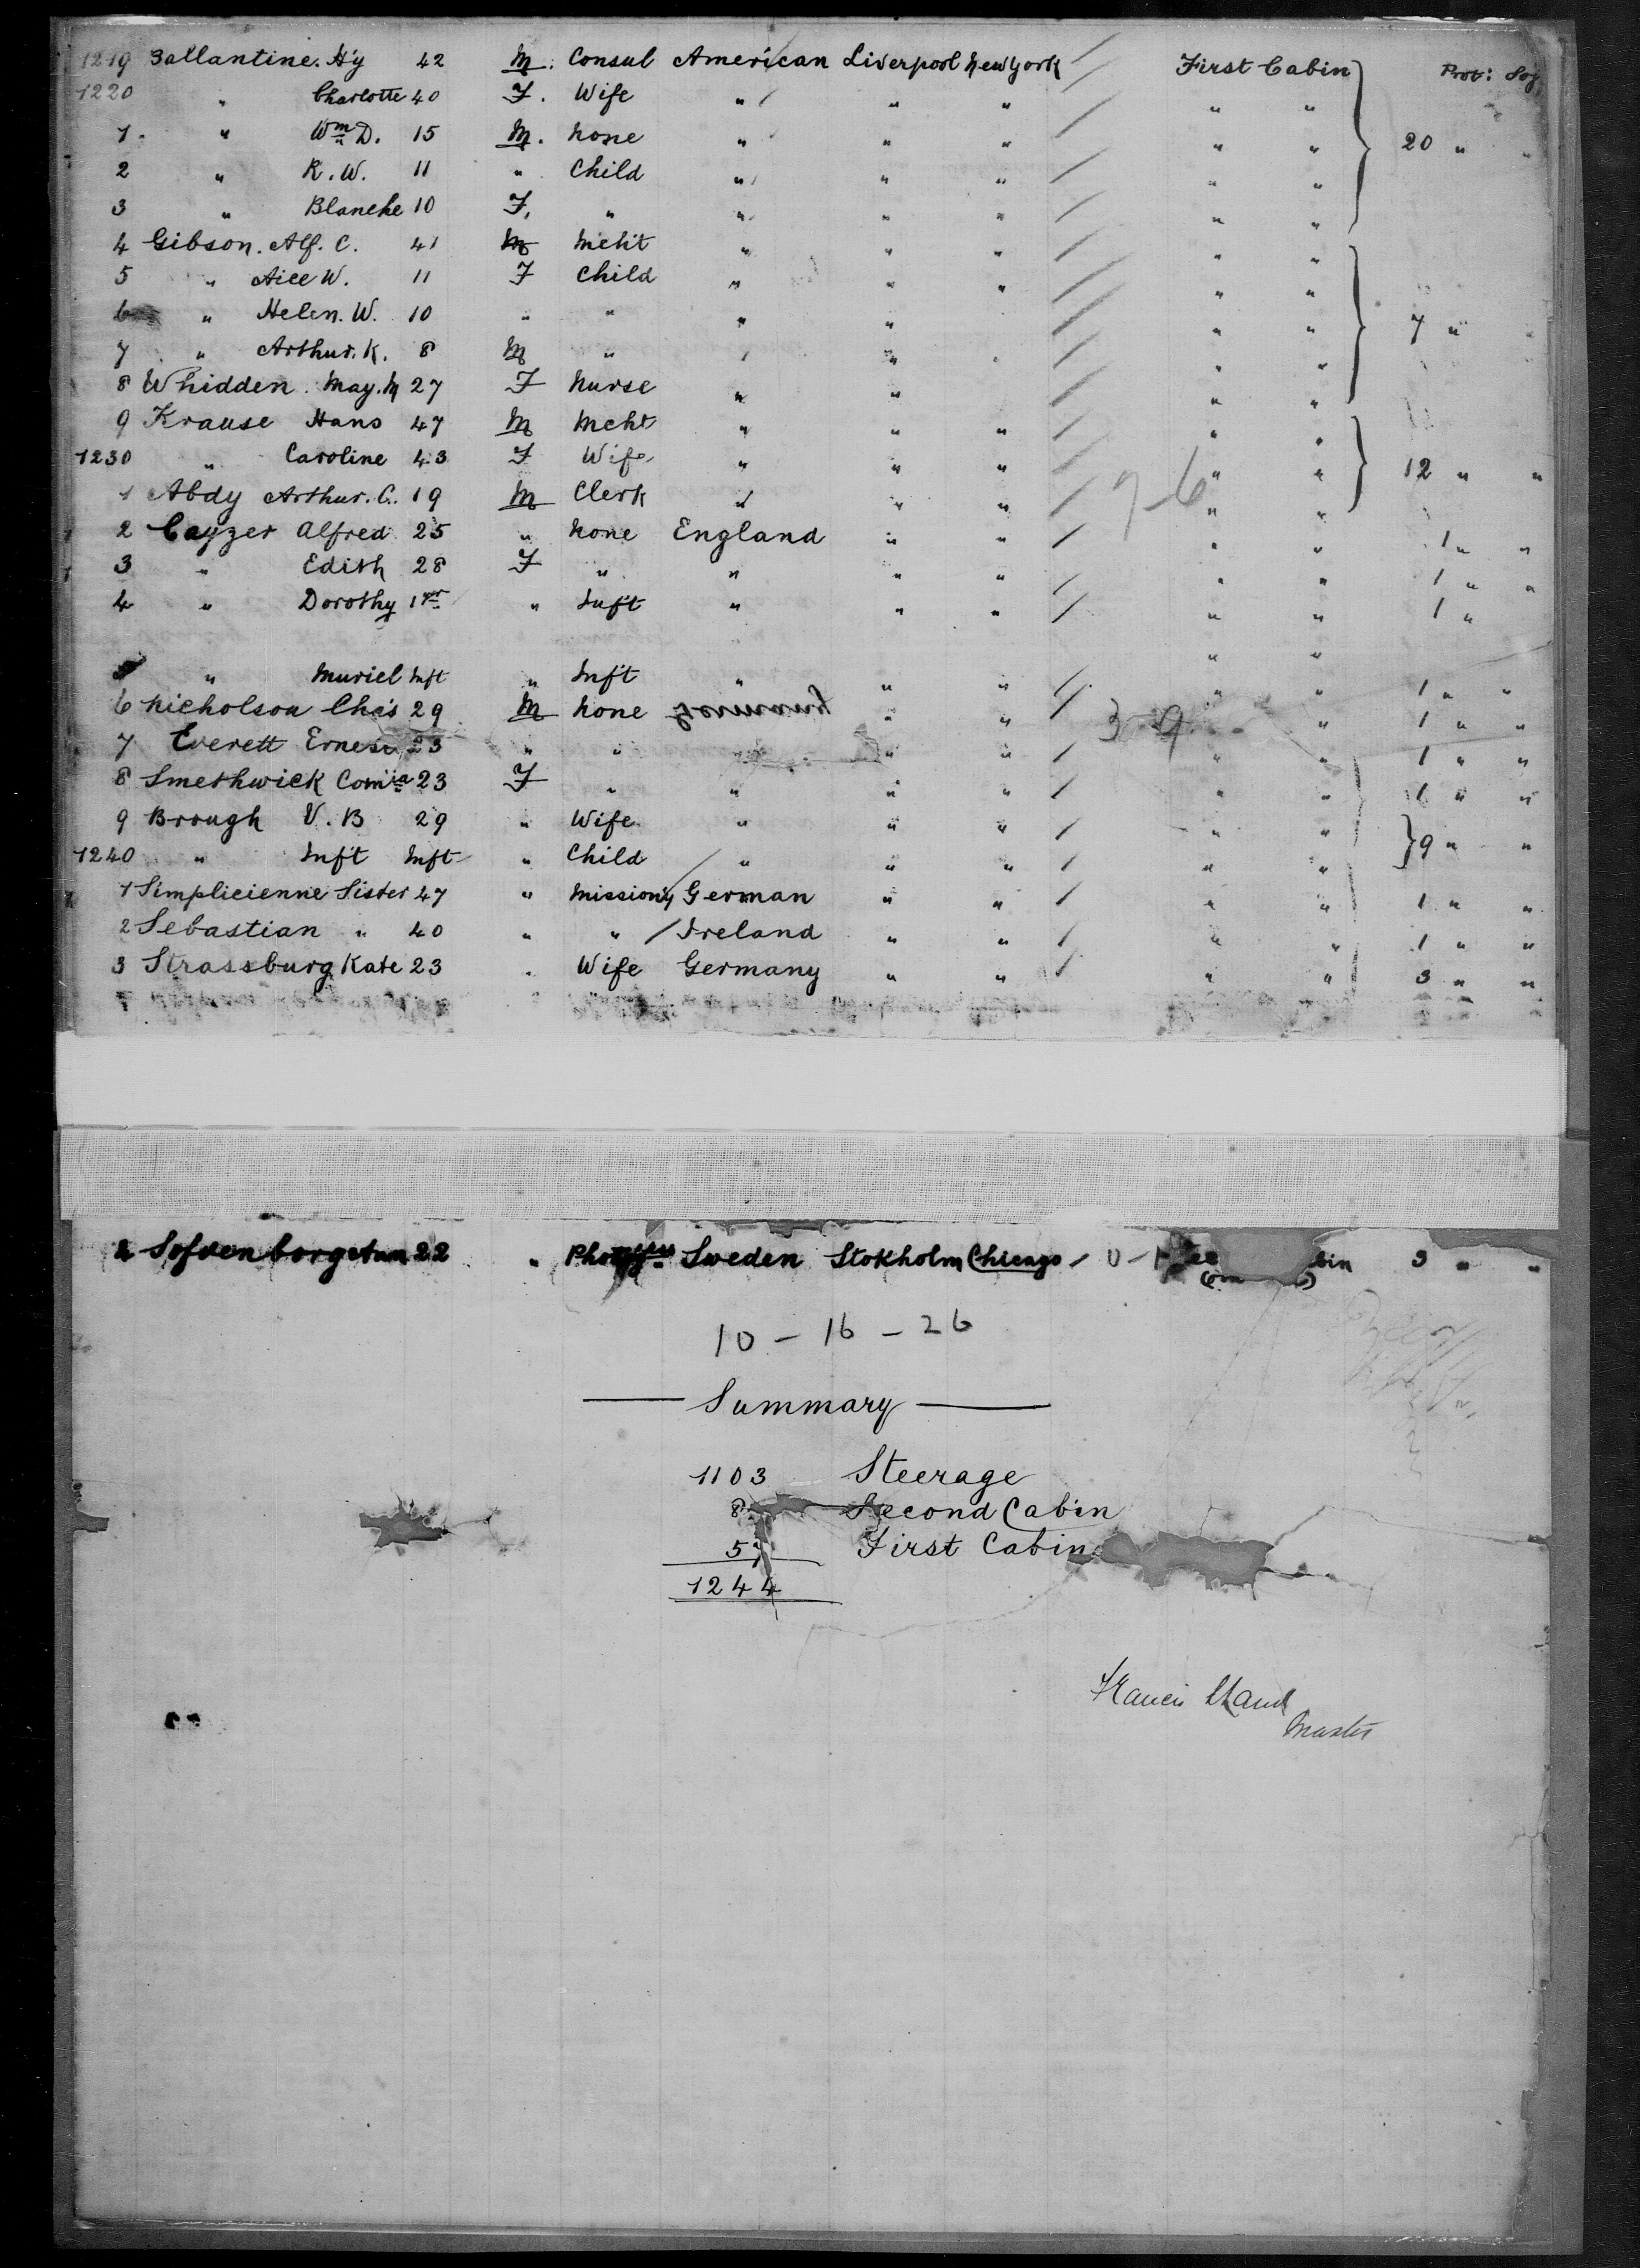 1219 Ballantine. Hy 42 M. Consul American Liverpool New York / First Cabin Prot: Soj.
1220 " Charlotte 40 F. Wife " " " / " "
1 " Wm D. 15 M. None " " " / " " 20 " "
2 " R. W. 11 " Child " " " / " "
3 " Blanche 10 F. " " " " / " "
4 Gibson. Alf. C. 41 M Mcht " " " / " "
5 " Aice W. 11 F Child " " " / " "
6 " Helen. W. 10 " " " " / " " 7 "
7 " Arthur. K. 8 M " " " / " "
8 Whidden. May. M 27 F Nurse " " / " "
9 Krause Hans 47 M Mcht " " " / " "
1230 " Caroline 43 F Wife " " " / " " 12 " "
1 Abdy Arthur. C. 19 M Clerk " " " / 7-6 " "
2 Cayzer Alfred 25 " None England " " / " " 1 " "
3 " Edith 28 F " " " " / " " 1 " "
4 " Dorothy 1 yr " Inft " " " / " " 1 "
" "
5 " Muriel Inft " Inft " " " / " " 1 " "
6 Nicholson Chas 29 M None " " / 3-9 " 1 " "
7 Everett Ernest 23 " " " " / " " 1 " "
8 Smethwick 23 F " " " " / " " 1 " "
9 Brough V. B 29 " Wife " " " / " " 9 " "
1240 " Inft Inft " Child / " " " / " "
1 Simplicienne Sister 47 " Missiony German " " / " " 1 " "
2 Sebastian " 40 " " / Ireland " " / " " 1 " "
3 Strassburg Kate 23 " Wife Germany " " / " " 3 " "
22 " Sweden Stokholm Chicago / 3 " "
10 - 16 - 26
Summary
1103 Steerage
8 Second Cabin
57 First Cabin
1244
Francis
Master